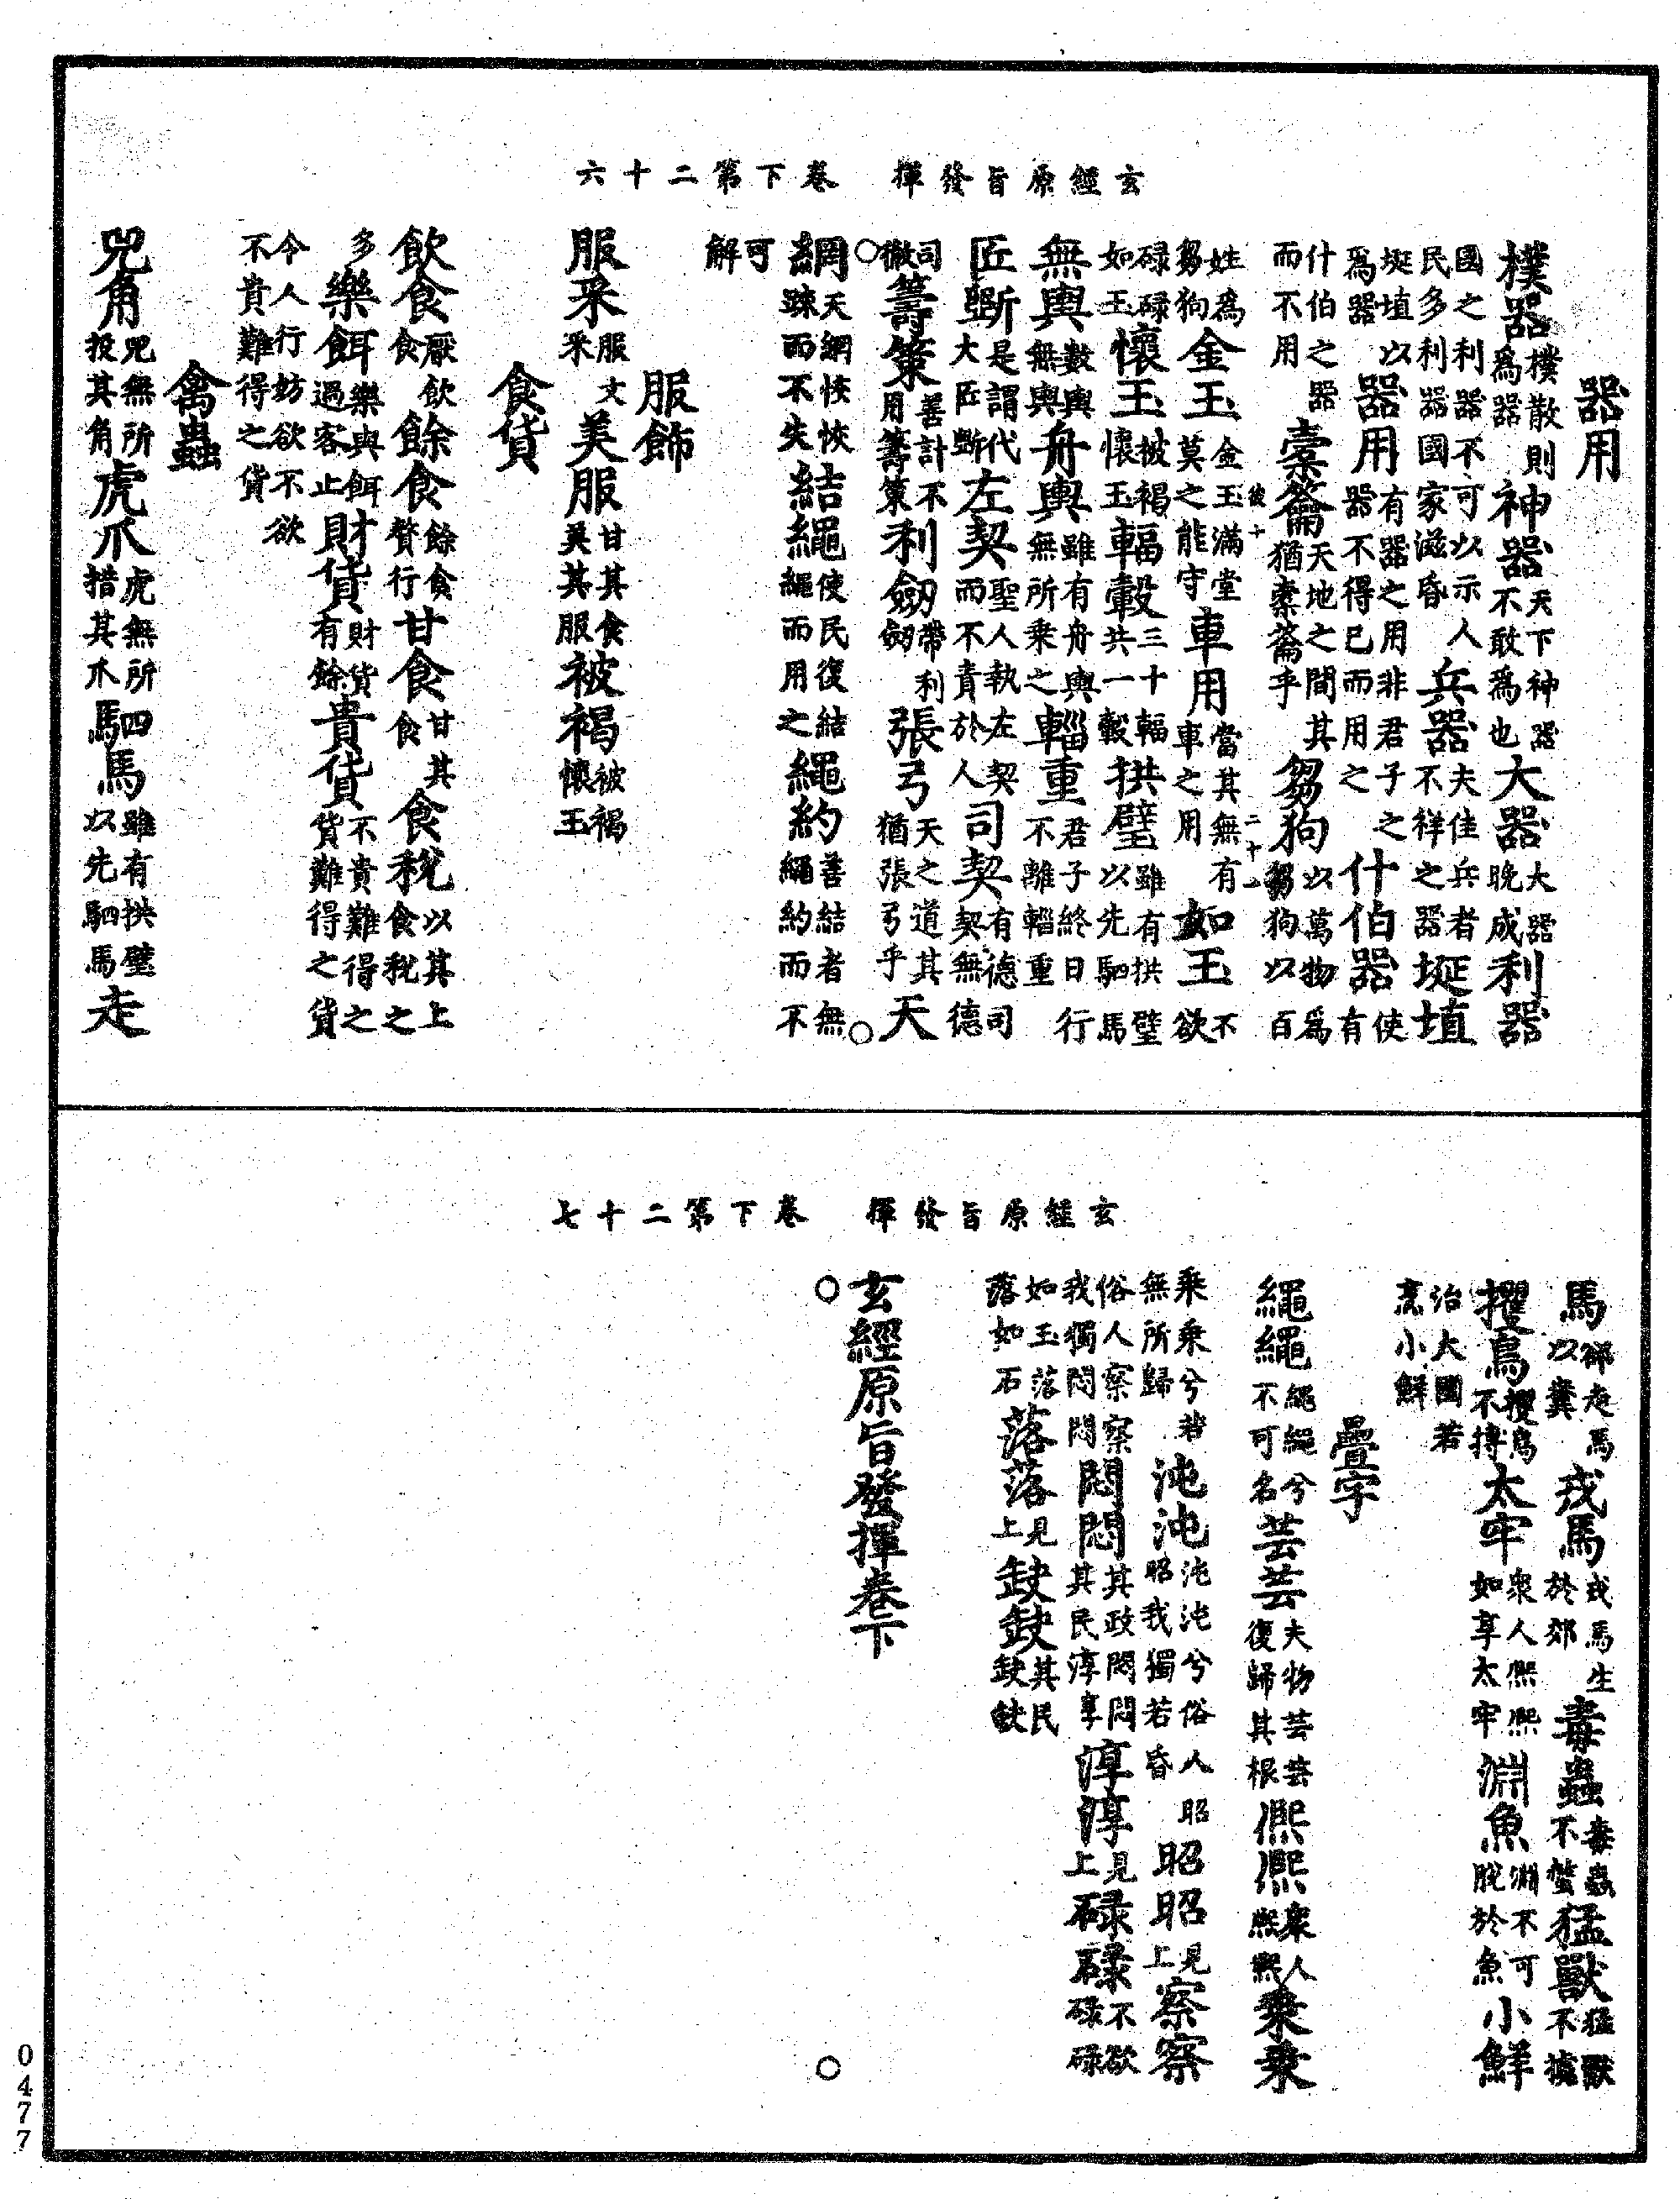 玄經原旨發揮　卷下第二十六
器用
樸器樸散則為器神器天下神器不敢為也大器大器晚成利器
國之利器不可以示人民多利器國家滋昏兵器夫佳兵者不祥之器埏埴
埏埴以為器器用有器之用非君子之器不得已而用之什伯器使有
什伯之器而不用橐籥天地之間其猶橐籥乎芻狗以萬物為芻狗以百
彼十　二十一
姓為芻狗金玉金玉滿堂莫之能守車用當其無有車之用如玉不欲
碌碌如玉懷玉被褐懷玉輻轂三十輻共一轂拱璧雖有拱璧以先駟馬
無輿數輿無輿舟輿雖有舟輿無所乘之輜重君子終日行不離輜重
匠斲是謂代大匠斲左契聖人執左契而不責於人司契有德司契無德
司徹籌策善計不用籌策利劒帶利劒張弓天之道其猶張弓乎天
○　○
網天網恢恢踈而不失結繩使民復結繩而用之繩約善結者無繩約而不
可解
服飾
服采服文采美服甘其食美其服被褐被褐懷玉
食貨
飲食厭飲食餘食餘食贅行甘食甘其食食稅以其上食稅之
多樂餌樂與餌過客止財貨財貨有餘貴貨不貴難得之貨難得之貨
令人行妨欲不欲不貴難得之貨
禽蟲
兕角兕無所投其角虎爪虎無所措其爪駟馬雖有拱璧以先駟馬走
玄經原旨發揮　卷下第二十七
馬郤走馬以糞戎馬戎馬生於郊毒蟲毒蟲不螫猛獸猛獸不據
攫鳥攫鳥不搏太牢眾人熙熙如享太牢淵魚淵不可脫於魚小鮮
治大國若烹小鮮
疊字
繩繩繩繩兮不可名芸芸夫物芸芸復歸其根熙熙眾人熙熙乘乘
乘乘兮若無所歸沌沌沌沌兮俗人昭昭我獨若昏昭昭見上察察
俗人察察我獨悶悶悶悶其政悶悶其民淳淳淳淳見上碌碌不欲碌碌
如玉落落如石落落見上缺缺其民缺缺
玄經原旨發揮卷下
○　○
0477